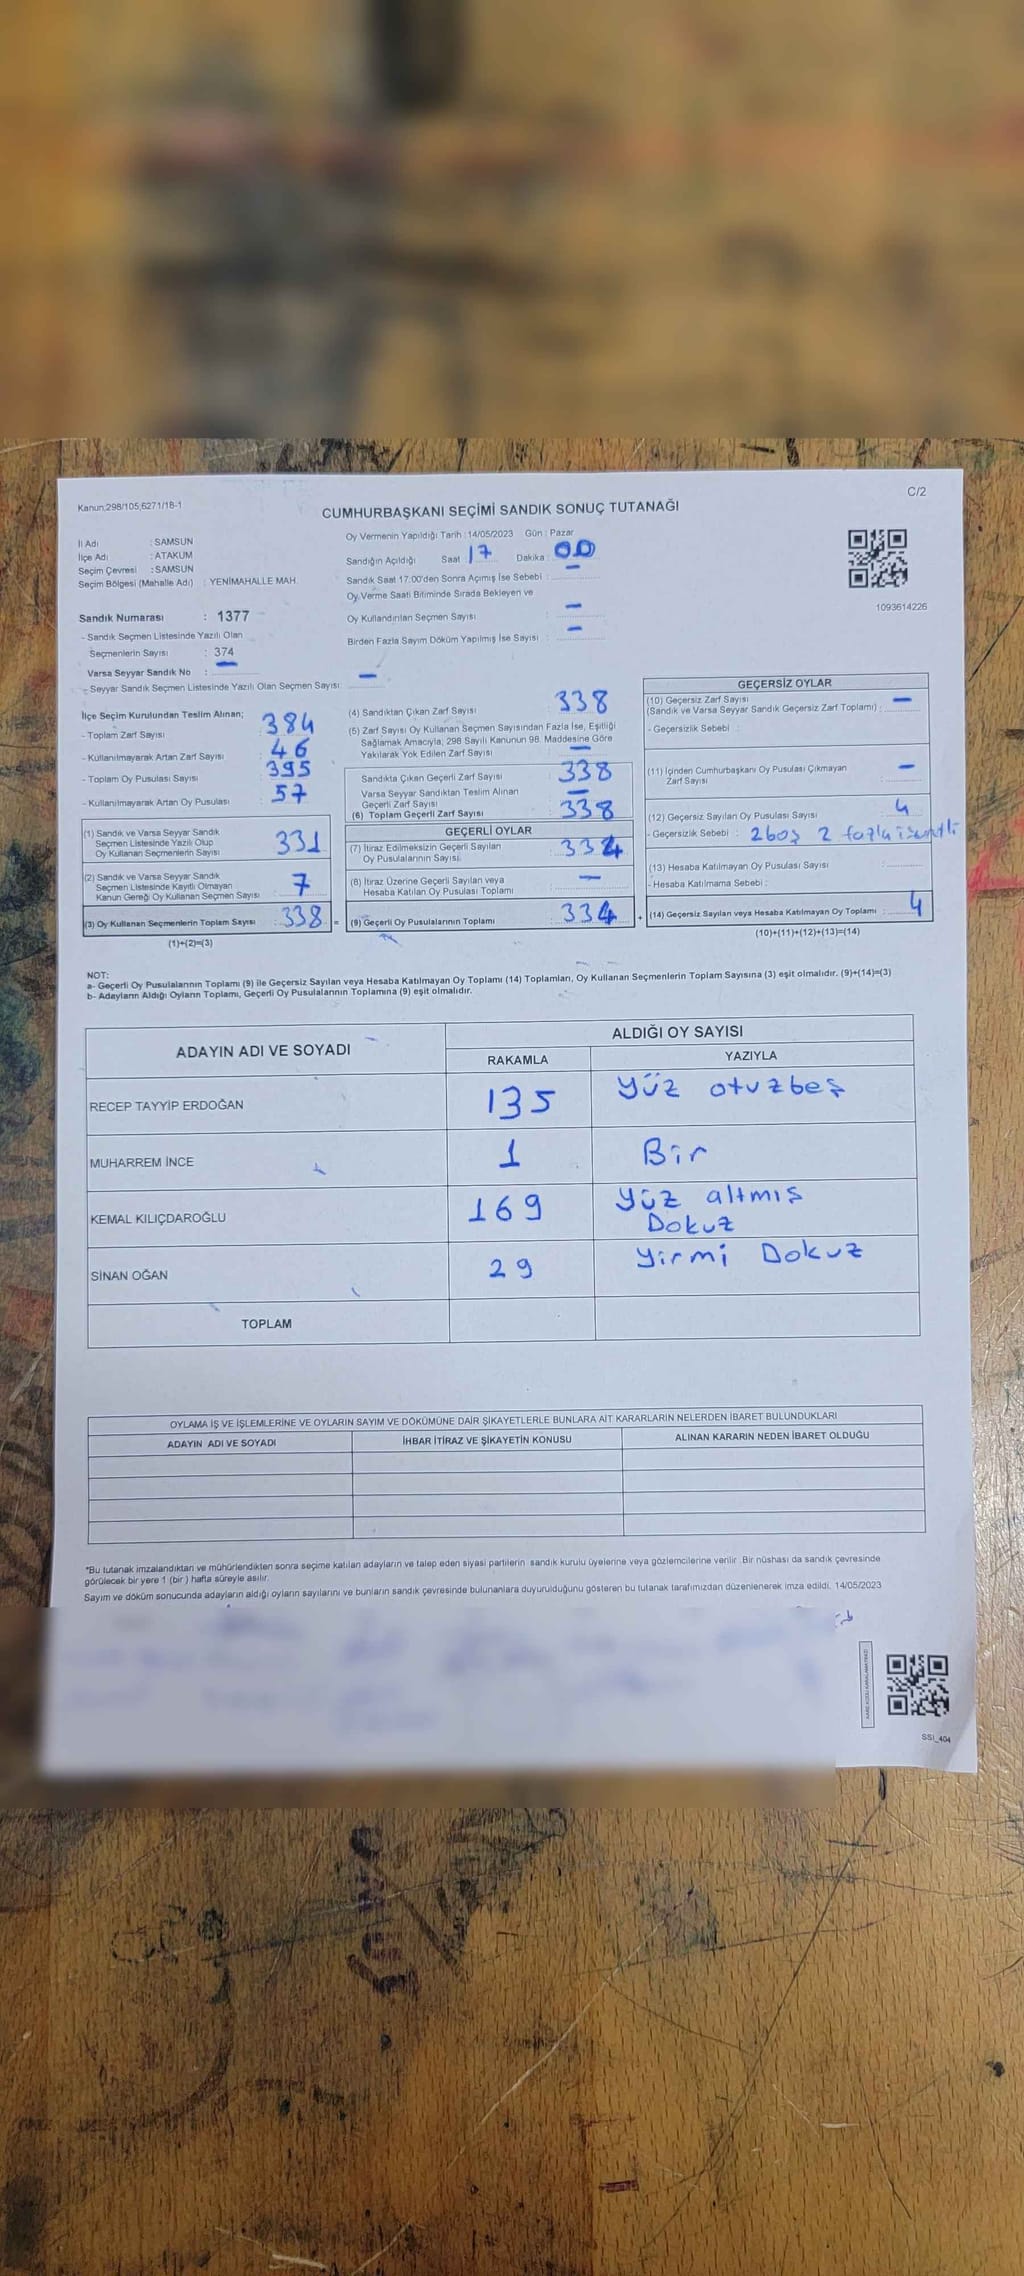 C/2
Kanun;298/105;6271/18-1
CUMHURBAŞKANI SEÇİMİ SANDIK SONUÇ TUTANAĞI
İl Adı : SAMSUN
İlçe Adı : ATAKUM
Seçim Çevresi : SAMSUN
Seçim Bölgesi (Mahalle Adı) : YENİMAHALLE MAH.
Sandık Numarası : 1377
- Sandık Seçmen Listesinde Yazılı Olan
Seçmenlerin Sayısı : 374
Varsa Seyyar Sandık No : —
- Seyyar Sandık Seçmen Listesinde Yazılı Olan Seçmen Sayısı: —
Oy Vermenin Yapıldığı Tarih : 14/05/2023 Gün : Pazar
Sandığın Açıldığı Saat : 17 Dakika : 00
Sandık Saat 17:00'den Sonra Açımış İse Sebebi : —
Oy Verme Saati Bitiminde Sırada Bekleyen ve
Oy Kullandırılan Seçmen Sayısı : —
Birden Fazla Sayım Döküm Yapılmış İse Sayısı : —
1093614226
İlçe Seçim Kurulundan Teslim Alınan;
- Toplam Zarf Sayısı : 384
- Kullanılmayarak Artan Zarf Sayısı : 46
- Toplam Oy Pusulası Sayısı : 395
- Kullanılmayarak Artan Oy Pusulası : 57
(1) Sandık ve Varsa Seyyar Sandık
Seçmen Listesinde Yazılı Olup
Oy Kullanan Seçmenlerin Sayısı : 331
(2) Sandık ve Varsa Seyyar Sandık
Seçmen Listesinde Kayıtlı Olmayan
Kanun Gereği Oy Kullanan Seçmen Sayısı : 7
(3) Oy Kullanan Seçmenlerin Toplam Sayısı : 338 =
(1)+(2)=(3)
(4) Sandıktan Çıkan Zarf Sayısı : 338
(5) Zarf Sayısı Oy Kullanan Seçmen Sayısından Fazla İse, Eşitliği
Sağlamak Amacıyla; 298 Sayılı Kanunun 98. Maddesine Göre
Yakılarak Yok Edilen Zarf Sayısı : —
Sandıkta Çıkan Geçerli Zarf Sayısı : 338
Varsa Seyyar Sandıktan Teslim Alınan
Geçerli Zarf Sayısı : —
(6) Toplam Geçerli Zarf Sayısı : 338
GEÇERLİ OYLAR
(7) İtiraz Edilmeksizin Geçerli Sayılan
Oy Pusulalarının Sayısı : 334
(8) İtiraz Üzerine Geçerli Sayılan veya
Hesaba Katılan Oy Pusulası Toplamı : —
(9) Geçerli Oy Pusulalarının Toplamı : 334 +
GEÇERSİZ OYLAR
(10) Geçersiz Zarf Sayısı
(Sandık ve Varsa Seyyar Sandık Geçersiz Zarf Toplamı) : —
- Geçersizlik Sebebi :
(11) İçinden Cumhurbaşkanı Oy Pusulası Çıkmayan
Zarf Sayısı : —
(12) Geçersiz Sayılan Oy Pusulası Sayısı : 4
- Geçersizlik Sebebi : 2 boş 2 fazla işaretli
(13) Hesaba Katılmayan Oy Pusulası Sayısı :
- Hesaba Katılmama Sebebi :
(14) Geçersiz Sayılan veya Hesaba Katılmayan Oy Toplamı : 4
(10)+(11)+(12)+(13)=(14)
NOT:
a- Geçerli Oy Pusulalarının Toplamı (9) ile Geçersiz Sayılan veya Hesaba Katılmayan Oy Toplamı (14) Toplamları, Oy Kullanan Seçmenlerin Toplam Sayısına (3) eşit olmalıdır. (9)+(14)=(3)
b- Adayların Aldığı Oyların Toplamı, Geçerli Oy Pusulalarının Toplamına (9) eşit olmalıdır.
ADAYIN ADI VE SOYADI
ALDIĞI OY SAYISI
RAKAMLA YAZIYLA
RECEP TAYYİP ERDOĞAN 135 Yüz otuzbeş
MUHARREM İNCE 1 Bir
KEMAL KILIÇDAROĞLU 169 Yüz altmış
Dokuz
SİNAN OĞAN 29 Yirmi Dokuz
TOPLAM
OYLAMA İŞ VE İŞLEMLERİNE VE OYLARIN SAYIM VE DÖKÜMÜNE DAİR ŞİKAYETLERLE BUNLARA AİT KARARLARIN NELERDEN İBARET BULUNDUKLARI
ADAYIN ADI VE SOYADI İHBAR İTİRAZ VE ŞİKAYETİN KONUSU ALINAN KARARIN NEDEN İBARET OLDUĞU
*Bu tutanak imzalandıktan ve mühürlendikten sonra seçime katılan adayların ve talep eden siyasi partilerin sandık kurulu üyelerine veya gözlemcilerine verilir. Bir nüshası da sandık çevresinde
görülecek bir yere 1 (bir) hafta süreyle asılır.
Sayım ve döküm sonucunda adayların aldığı oyların sayılarını ve bunların sandık çevresinde bulunanlara duyurulduğunu gösteren bu tutanak tarafımızdan düzenlenerek imza edildi. 14/05/2023
SSI_404